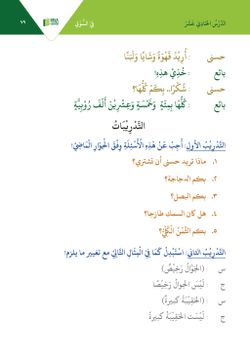 الدَّرْسُ الْحَادِيْ عَشَرَ
فِي السُّوْقِ
٧٩
حسنى : أُرِيْدُ قَهْوَةً وَشَايًا وَلَبَنًا
بائع : خُذِيْ هذِهِ!
حسنى : شُكْرًا.. بِكَمْ كُلُّهَا؟
بائع : كُلُّهَا بِمِئَةٍ وَخَمْسَةٍ وَعِشْرِيْنَ أَلْفَ رُوْبِيَّةٍ
التَّدْرِيْبَاتُ
التَّدْرِيْبُ الأَوَّلُ: أَجِبْ عَنْ هَذِهِ الْأَسْئِلَةِ وِفْقَ الْحِوَارِ الْمَاضِيْ!
١. ماذا تريد حسنى أن تشتري؟
٢. بكم الدجاجة؟
٣. بكم البصل؟
٤. هل كان السمك طازجا؟
٥. بِكَمْ الثَّمَنُ الْكُلِّيُّ؟
التَّدْرِيْبُ الثَّانِي: اسْتَبْدِلْ كَمَا فِيْ الْمِثَالِ التَّالِيْ مع تغيير ما يلزم!
س (الجَوَّالُ رَخِيْصٌ)
ج لَيْسَ الْجَوَّالُ رَخِيْصًا
س (الحَقِيْبَةُ كَبِيْرَةٌ)
ج لَيْسَت الْحَقِيْبَةُ كَبِيْرَةً